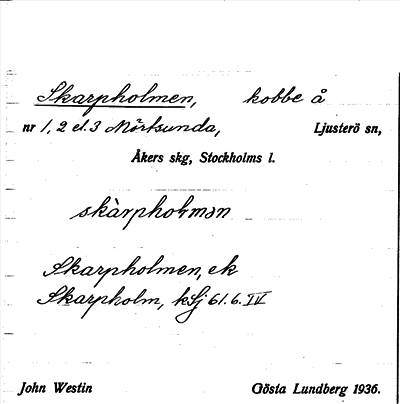 Skarpholmen, kobbe å
nr 1, 2 el. 3 Mörtsunda, Ljusterö sn,
Åkers skg, Stockholms l.
skàrphoļmən
Skarpholmen, ek
Skarpholm, kSj 61.6. IV
John Westin Gösta Lundberg 1936.